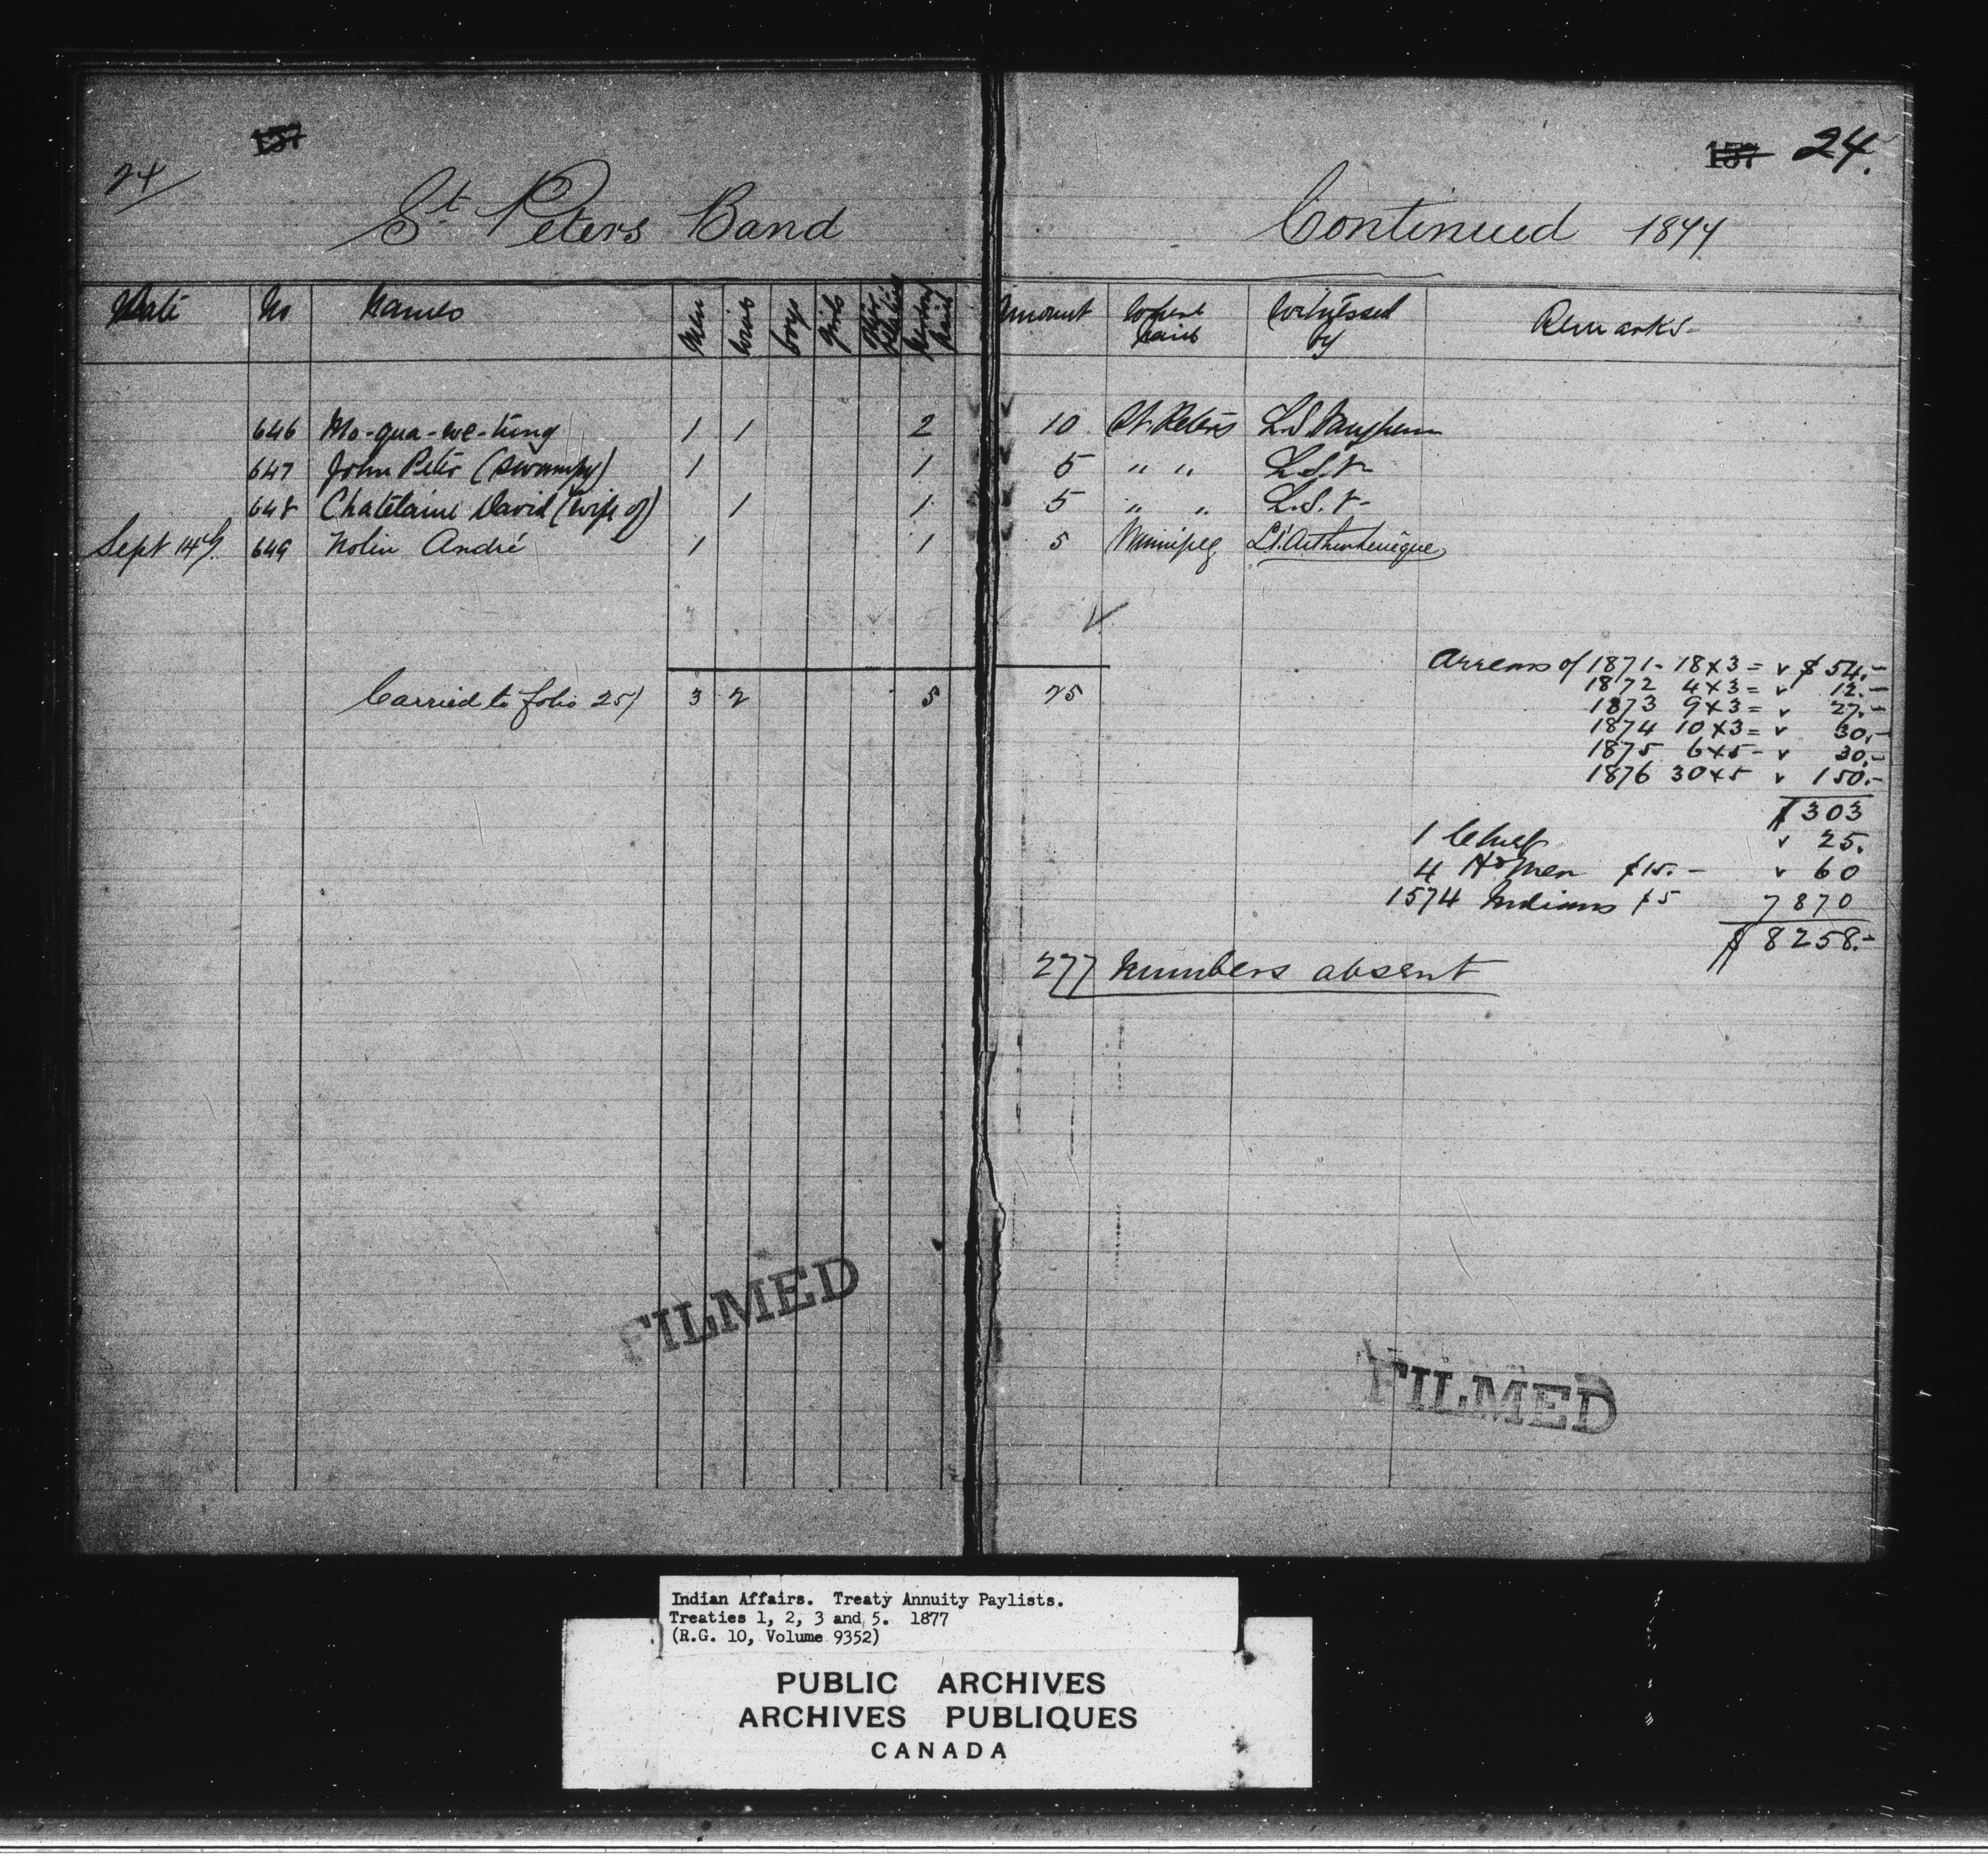 157
24/
St. Peters Band
157 24.
Continued 1877
Date No Names Men Women boys girls Other Relatives Number Paid Amount Where paid Witnessed by Remarks
646 Mo-qua-we-tung 1 1 2 10 St. Peters L.S.
647 John Peter (Swampy) 1 1 5 " " L.S.V-
648 Chatelaine David (wife of) 1 1 5 " " L.S.V-
Sept 14th 649 Nolin André 1 1 5 Winnipeg
Carried to folio 25/ 3 2 5 25
Arrears of 1871 - 18x3 = $54.-
1872 4x3 = 12.-
1873 9x3 = 27.-
1874 10x3 = 30.-
1875 6x5 - 30.-
1876 30x5 150.-
$303
1 Chief 25.
4 Hd Men $15.- 60
1574 Indians $5 7870
$8258.-
277 Numbers absent
FILMED
FILMED
Indian Affairs. Treaty Annuity Paylists.
Treaties 1, 2, 3 and 5. 1877
(R.G. 10, Volume 9352)
PUBLIC ARCHIVES
ARCHIVES PUBLIQUES
CANADA